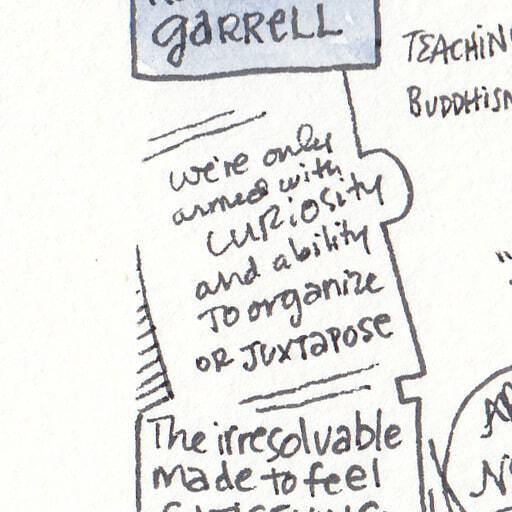 garrell
TEACHIN
BUDDHISM
we're only
armed with
curiosity
and ability
to organize
or juxtapose
The irresolvable
made to feel